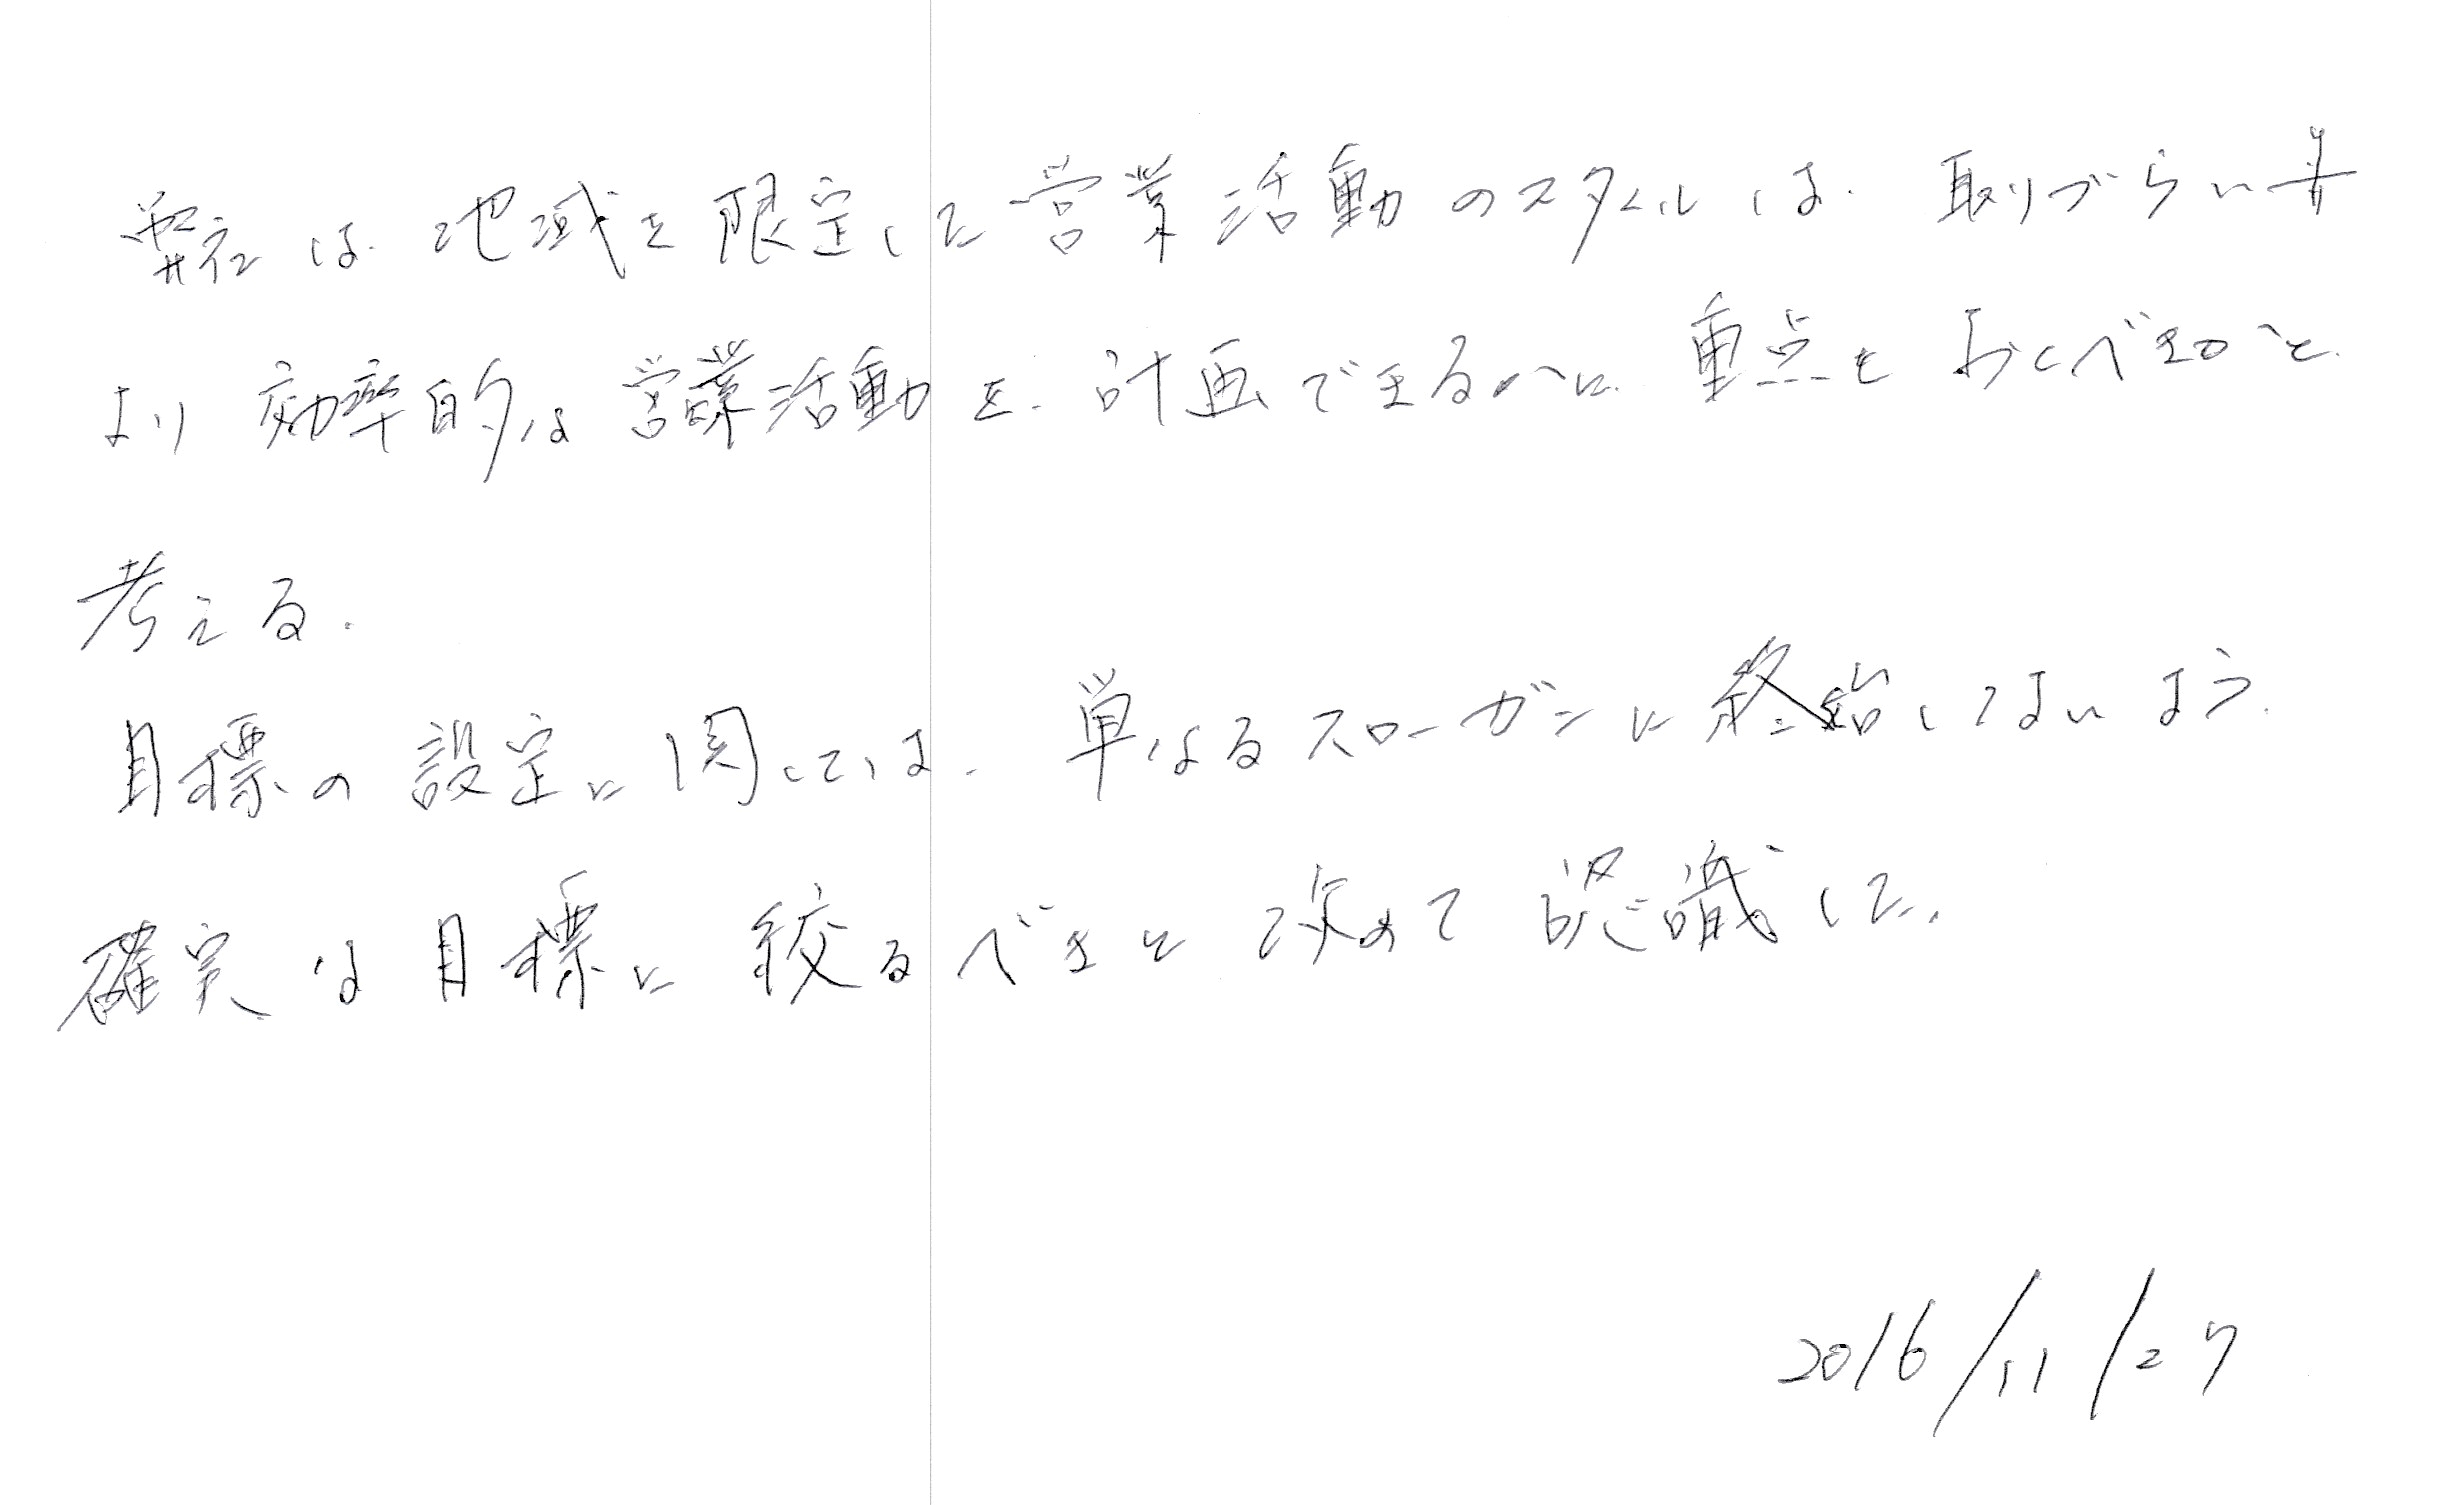 弊社は地域を限定した営業活動のスタイルは取りづらいが
より効率的な営業活動を計画できるかに重点をおくべきかと
考える.
目標の設定に関しては、単なるスローガンに終始しないよう
確実な目標に絞るべきと改めて認識した.
2016/11/27